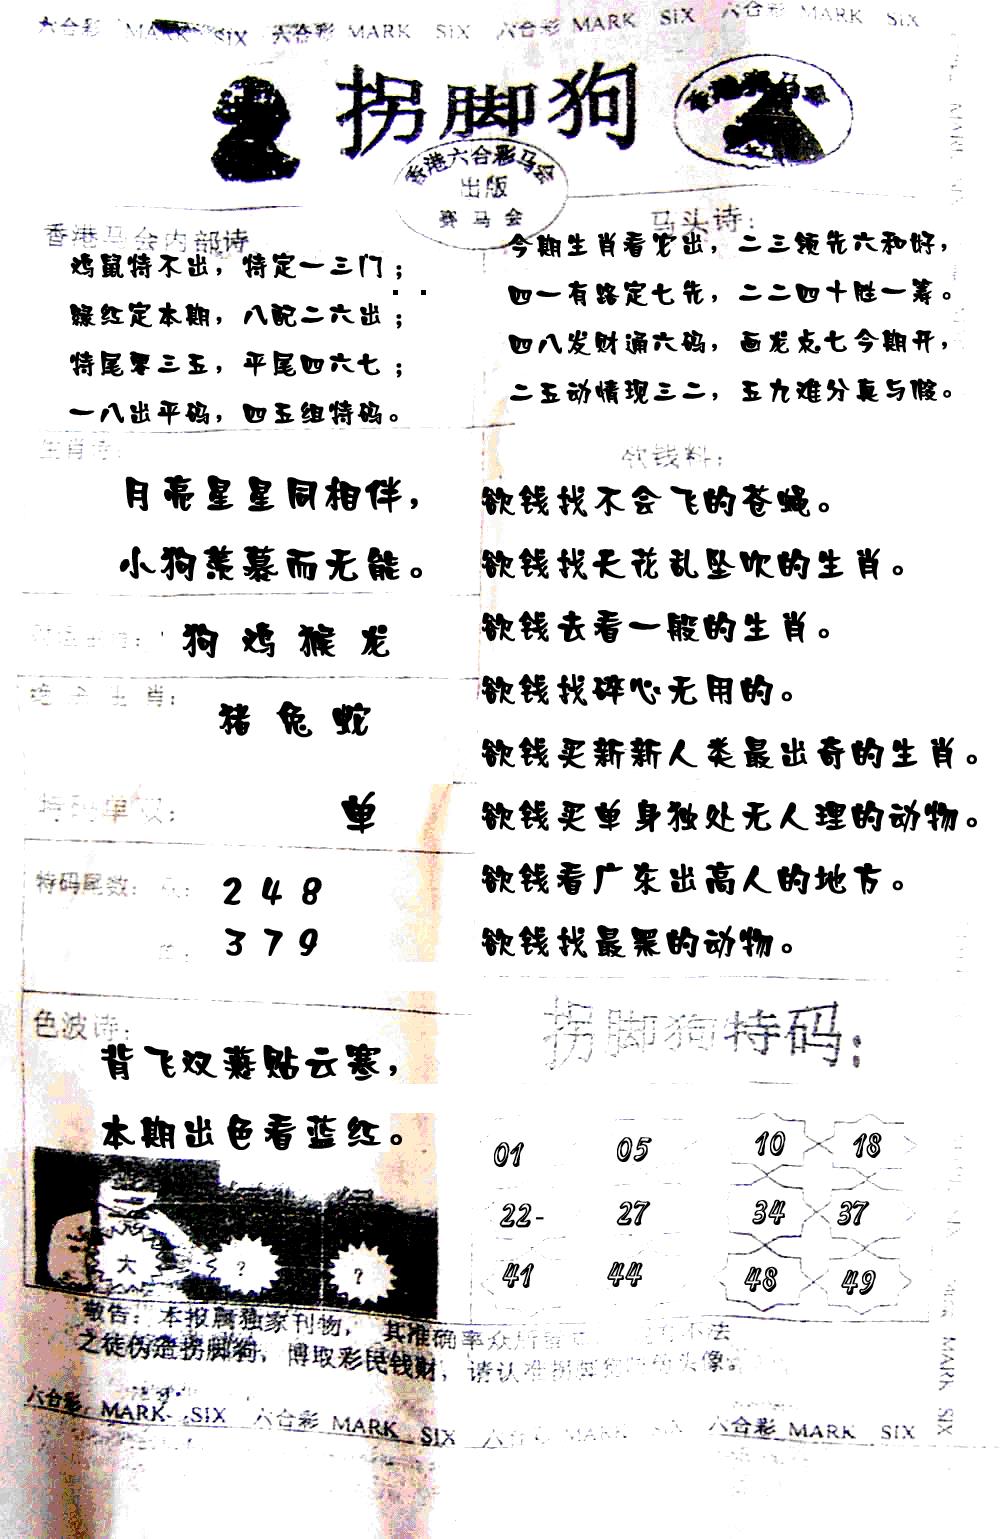 六合彩 MARK SIX 六合彩 MARK SIX 六合彩 MARK SIX 六合彩 MARK SIX
拐脚狗
香港六合彩马会
出版
赛马会
香港马会内部诗
鸡鼠特不出，特定一三门；
绿红定本期，八配二六出；
特尾零三五，平尾四六七；
一八出平码，四五组特码。
马头诗：
今期生肖看龙出，二三领先六和好，
四一有路定七先，二二四十胜一筹。
四八发财通六码，画龙点七今期开，
二五动情现三二，五九难分真与假。
生肖诗：
月亮星星同相伴，
小狗羡慕而无能。
狗 鸡 猴 龙
绝杀生肖：
猪 兔 蛇
特码单双：
单
特码尾数：
2 4 8
3 7 9
欲钱料：
欲钱找不会飞的苍蝇。
欲钱找天花乱坠吹的生肖。
欲钱去看一般的生肖。
欲钱找碎心无用的。
欲钱买新新人类最出奇的生肖。
欲钱买单身独处无人理的动物。
欲钱看广东出高人的地方。
欲钱找最黑的动物。
色波诗：
背飞双燕贴云寒，
本期出色看蓝红。
大 ? ?
拐脚狗特码：
01 05 10 18
22- 27 34 37
41 44 48 49
敬告：本报属独家刊物，其准确率众所 不法
之徒伪造拐脚狗，博取彩民钱财，请认准拐脚狗 头像
六合彩 MARK SIX 六合彩 MARK SIX 六合彩 MARK SIX 六合彩 MARK SIX
MARK SIX